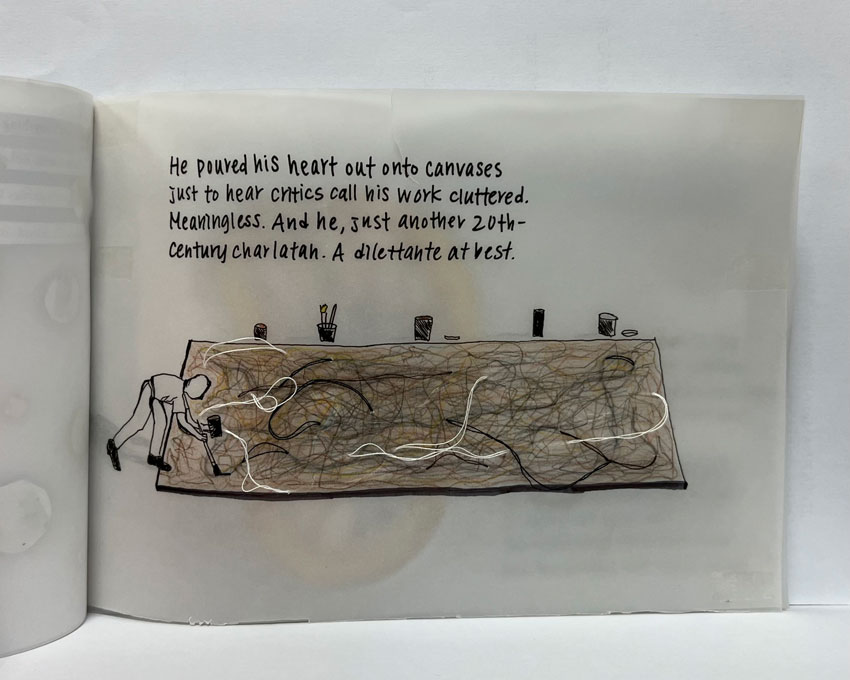 He poured his heart out onto canvases
just to hear critics call his work cluttered.
Meaningless. And he, just another 20th-
century charlatan. A dilettante at best.